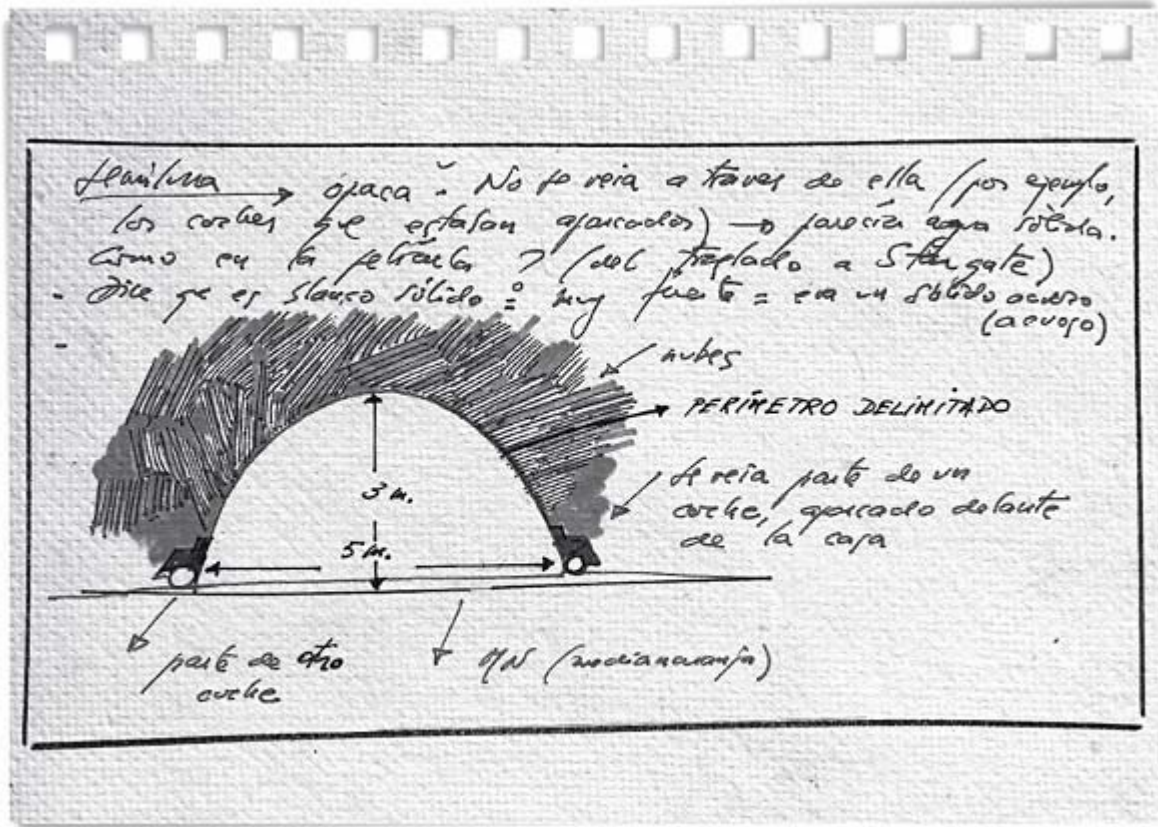 Semiluna → opaca. No se veia a traves de ella (por ejemplo,
los coches que estaban aparcados) → parecía agua sólida.
Como en la película ? (del traslado a Stargate)
- Dice qe es blanco sólido : muy fuerte = era un sólido acuoso
(acuoso)
-
nubes
PERÍMETRO DELIMITADO
3 m.
se veia parte de un
coche, aparcado delante
de la casa
5 m.
parte de otro
coche
MN (medianaranja)